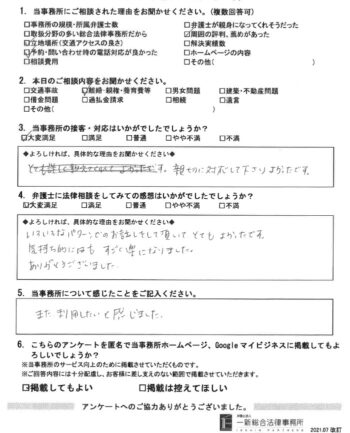 1. 当事務所にご相談された理由をお聞かせください。（複数回答可）
□事務所の規模・所属弁護士数 □弁護士が親身になってくれそうだった
□取扱分野の多い総合法律事務所だから ☑周囲の評判、薦めがあった
☑立地場所（交通アクセスの良さ） □解決実績数
☑予約・問い合わせ時の電話対応が良かった □ホームページの内容
□相談費用 □その他（ ）
2. 本日のご相談内容をお聞かせください。
□交通事故 ☑離婚・親権・養育費等 □男女問題 □建築・不動産問題
□借金問題 □過払金請求 □相続 □遺言
□その他（ ）
3. 当事務所の接客・対応はいかがでしたでしょうか？
☑大変満足 □満足 □普通 □やや不満 □不満
◆よろしければ、具体的な理由をお聞かせください◆
親切に対応して下さりよかったです。
4. 弁護士に法律相談をしてみての感想はいかがでしたでしょうか？
☑大変満足 □満足 □普通 □やや不満 □不満
◆よろしければ、具体的な理由をお聞かせください◆
いろいろなパターンでのお話しをして頂いてとてもよかったです。
気持ち的にもすごく楽になりました。
ありがとうございました。
5. 当事務所について感じたことをご記入ください。
また利用したいと感じました。
6. こちらのアンケートを匿名で当事務所ホームページ、Googleマイビジネスに掲載してもよ
ろしいでしょうか？
※当事務所のサービス向上のために掲載させていただくものです。
※ご回答内容には十分配慮し、お客様に差し支えのない範囲で掲載させていただきます。
☑掲載してもよい □掲載は控えてほしい
アンケートへのご協力ありがとうございました。
弁護士法人
一新総合法律事務所
2021.07 改訂